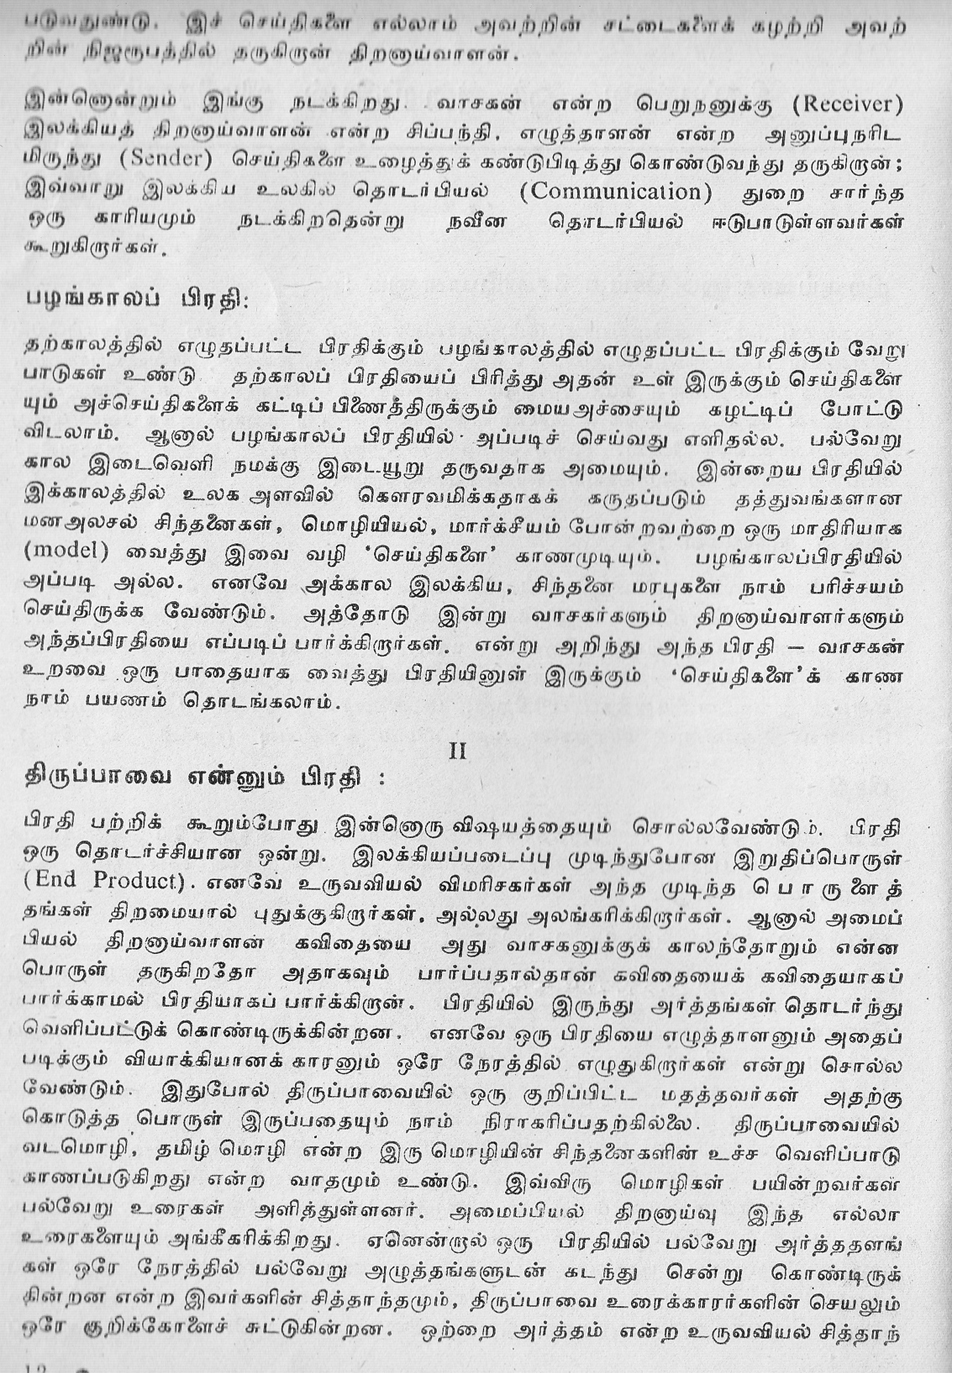 படுவதுண்டு. இச் செய்திகளை எல்லாம் அவற்றின் சட்டைகளைக் கழற்றி அவற்
றின் நிஜரூபத்தில் தருகிறான் திறனாய்வாளன்.
இன்னொன்றும் இங்கு நடக்கிறது. வாசகன் என்ற பெறுநனுக்கு (Receiver)
இலக்கியத் திறனாய்வாளன் என்ற சிப்பந்தி, எழுத்தாளன் என்ற அனுப்புநரிட
மிருந்து (Sender) செய்திகளை உழைத்துக் கண்டுபிடித்து கொண்டுவந்து தருகிறான்;
இவ்வாறு இலக்கிய உலகில் தொடர்பியல் (Communication) துறை சார்ந்த
ஒரு காரியமும் நடக்கிறதென்று நவீன தொடர்பியல் ஈடுபாடுள்ளவர்கள்
கூறுகிறார்கள்.
பழங்காலப் பிரதி:
தற்காலத்தில் எழுதப்பட்ட பிரதிக்கும் பழங்காலத்தில் எழுதப்பட்ட பிரதிக்கும் வேறு
பாடுகள் உண்டு தற்காலப் பிரதியைப் பிரித்து அதன் உள் இருக்கும் செய்திகளை
யும் அச்செய்திகளைக் கட்டிப் பிணைத்திருக்கும் மையஅச்சையும் கழட்டிப் போட்டு
விடலாம். ஆனால் பழங்காலப் பிரதியில் அப்படிச் செய்வது எளிதல்ல. பல்வேறு
கால இடைவெளி நமக்கு இடையூறு தருவதாக அமையும். இன்றைய பிரதியில்
இக்காலத்தில் உலக அளவில் கௌரவமிக்கதாகக் கருதப்படும் தத்துவங்களான
மனஅலசல் சிந்தனைகள், மொழியியல், மார்க்சீயம் போன்றவற்றை ஒரு மாதிரியாக
(model) வைத்து இவை வழி ‘செய்திகளை’ காணமுடியும். பழங்காலப்பிரதியில்
அப்படி அல்ல. எனவே அக்கால இலக்கிய, சிந்தனை மரபுகளை நாம் பரிச்சயம்
செய்திருக்க வேண்டும். அத்தோடு இன்று வாசகர்களும் திறனாய்வாளர்களும்
அந்தப்பிரதியை எப்படிப் பார்க்கிறார்கள். என்று அறிந்து அந்த பிரதி – வாசகன்
உறவை ஒரு பாதையாக வைத்து பிரதியினுள் இருக்கும் ‘செய்திகளை’க் காண
நாம் பயணம் தொடங்கலாம்.
II
திருப்பாவை என்னும் பிரதி :
பிரதி பற்றிக் கூறும்போது இன்னொரு விஷயத்தையும் சொல்லவேண்டும். பிரதி
ஒரு தொடர்ச்சியான ஒன்று. இலக்கியப்படைப்பு முடிந்துபோன இறுதிப்பொருள்
(End Product). எனவே உருவவியல் விமரிசகர்கள் அந்த முடிந்த பொருளைத்
தங்கள் திறமையால் புதுக்குகிறார்கள், அல்லது அலங்கரிக்கிறார்கள். ஆனால் அமைப்
பியல் திறனாய்வாளன் கவிதையை அது வாசகனுக்குக் காலந்தோறும் என்ன
பொருள் தருகிறதோ அதாகவும் பார்ப்பதால்தான் கவிதையைக் கவிதையாகப்
பார்க்காமல் பிரதியாகப் பார்க்கிறான். பிரதியில் இருந்து அர்த்தங்கள் தொடர்ந்து
வெளிப்பட்டுக் கொண்டிருக்கின்றன. எனவே ஒரு பிரதியை எழுத்தாளனும் அதைப்
படிக்கும் வியாக்கியானக் காரனும் ஒரே நேரத்தில் எழுதுகிறார்கள் என்று சொல்ல
வேண்டும். இதுபோல் திருப்பாவையில் ஒரு குறிப்பிட்ட மதத்தவர்கள் அதற்கு
கொடுத்த பொருள் இருப்பதையும் நாம் நிராகரிப்பதற்கில்லை. திருப்பாவையில்
வடமொழி, தமிழ் மொழி என்ற இரு மொழியின் சிந்தனைகளின் உச்ச வெளிப்பாடு
காணப்படுகிறது என்ற வாதமும் உண்டு. இவ்விரு மொழிகள் பயின்றவர்கள்
பல்வேறு உரைகள் அளித்துள்ளனர். அமைப்பியல் திறனாய்வு இந்த எல்லா
உரைகளையும் அங்கீகரிக்கிறது. ஏனென்றால் ஒரு பிரதியில் பல்வேறு அர்த்ததளங்
கள் ஒரே நேரத்தில் பல்வேறு அழுத்தங்களுடன் கடந்து சென்று கொண்டிருக்
கின்றன என்ற இவர்களின் சித்தாந்தமும், திருப்பாவை உரைக்காரர்களின் செயலும்
ஒரே குறிக்கோளைச் சுட்டுகின்றன. ஒற்றை அர்த்தம் என்ற உருவவியல் சித்தாந்